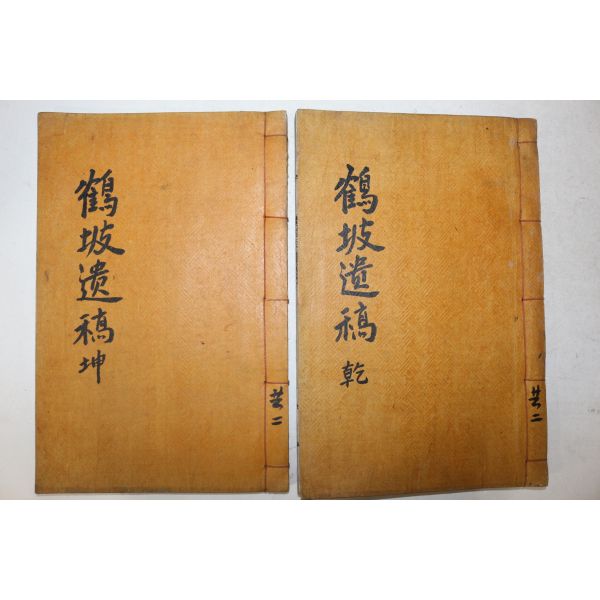 鶴坡遺稿 乾
共二
鶴坡遺稿 坤
共二